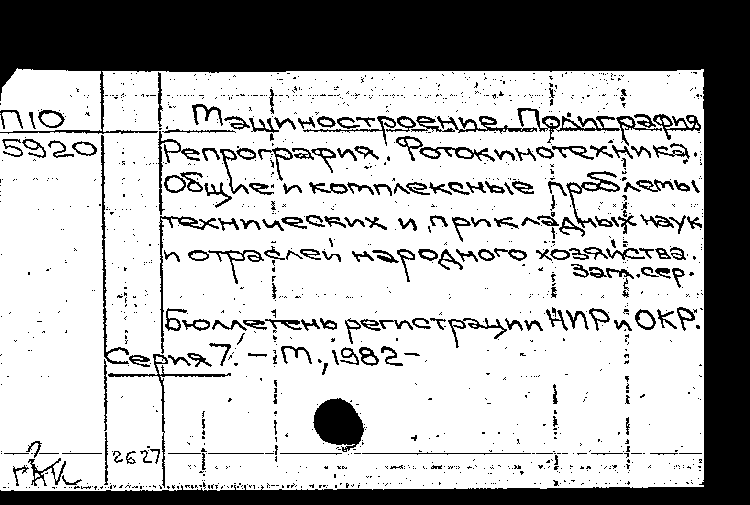 П10 Машиностроение. Полиграфия
5920 Репрография. Фотокинотехника.
Общие и комплексные проблемы
технических и прикладных наук
и отраслей народного хозяйства.
Заг. сер.
Бюллетень регистрации НИР и ОКР.
Серия 7. – М., 1982–
2627